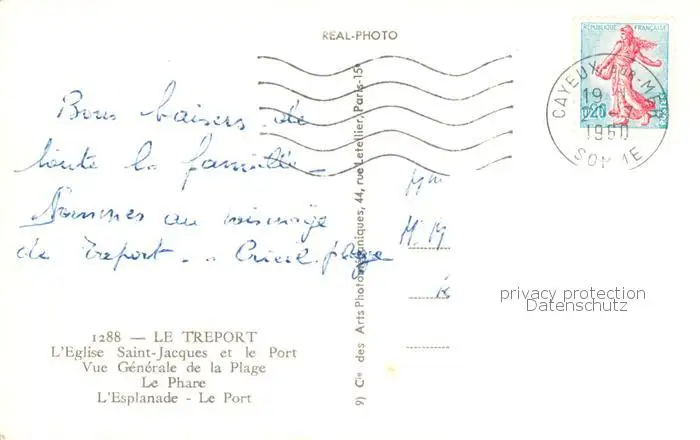 REAL-PHOTO
RÉPUBLIQUE FRANÇAISE
0,20
POSTES
CAYEUX-SUR-MER
19
1960
SOMME
Bons baisers de
toute la famille
Sommes au voisinage
de Treport - - Crieul plage
Mme
M. M
1288 — LE TREPORT
L'Eglise Saint-Jacques et le Port
Vue Générale de la Plage
Le Phare
L'Esplanade - Le Port
9) Cie des Arts Photomécaniques, 44, rue Letellier, Paris-15e
privacy protection
Datenschutz